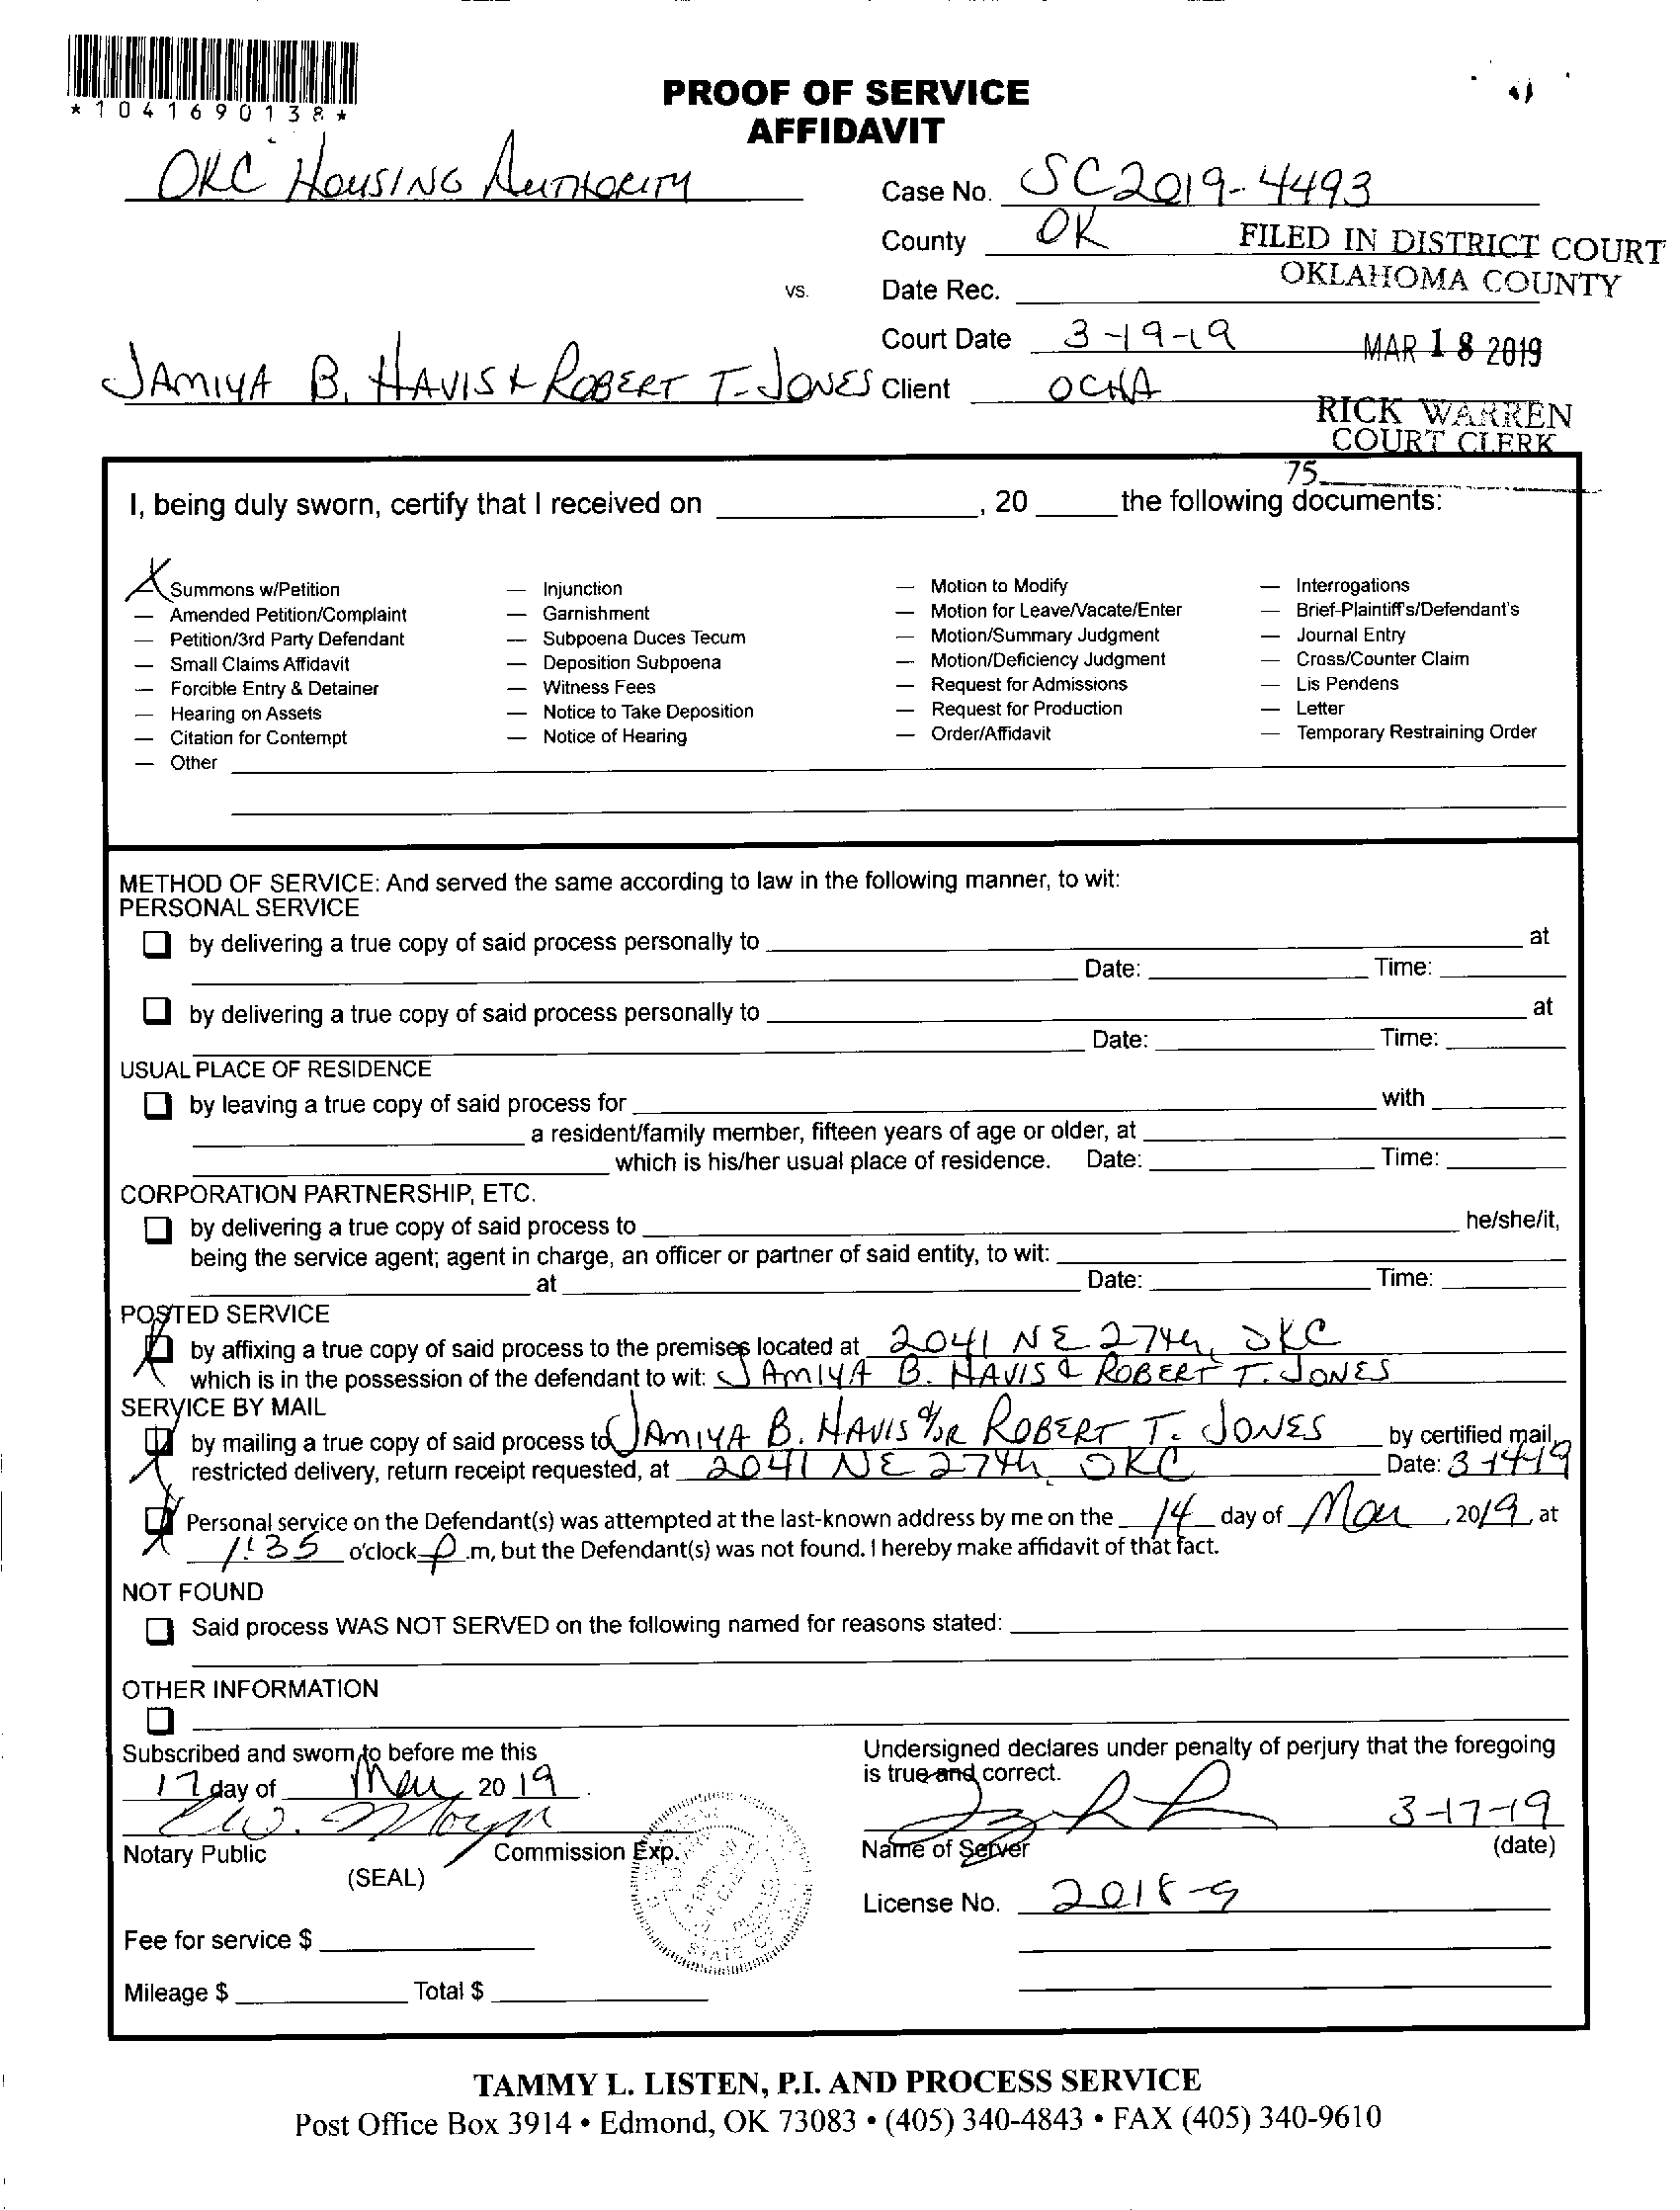 *1041690138*
PROOF OF SERVICE
AFFIDAVIT
OKC HOUSING AUTHORITY
Case No. SC2019-4493
County OK
FILED IN DISTRICT COURT
OKLAHOMA COUNTY
vs.
Date Rec.
Court Date 3-19-19
MAR 18 2019
JAMIYA B. HAVIS & ROBERT T. JONES
Client OCHA
RICK WARREN
COURT CLERK
75
I, being duly sworn, certify that I received on ____, 20 ____ the following documents:
X Summons w/Petition — Injunction — Motion to Modify — Interrogations
— Amended Petition/Complaint — Garnishment — Motion for Leave/Vacate/Enter — Brief-Plaintiff's/Defendant's
— Petition/3rd Party Defendant — Subpoena Duces Tecum — Motion/Summary Judgment — Journal Entry
— Small Claims Affidavit — Deposition Subpoena — Motion/Deficiency Judgment — Cross/Counter Claim
— Forcible Entry & Detainer — Witness Fees — Request for Admissions — Lis Pendens
— Hearing on Assets — Notice to Take Deposition — Request for Production — Letter
— Citation for Contempt — Notice of Hearing — Order/Affidavit — Temporary Restraining Order
— Other
METHOD OF SERVICE: And served the same according to law in the following manner, to wit:
PERSONAL SERVICE
by delivering a true copy of said process personally to ____ at
Date: ____ Time: ____
by delivering a true copy of said process personally to ____ at
Date: ____ Time: ____
USUAL PLACE OF RESIDENCE
by leaving a true copy of said process for ____ with ____
a resident/family member, fifteen years of age or older, at ____
which is his/her usual place of residence. Date: ____ Time: ____
CORPORATION PARTNERSHIP, ETC.
by delivering a true copy of said process to ____ he/she/it,
being the service agent; agent in charge, an officer or partner of said entity, to wit: ____
at ____ Date: ____ Time: ____
POSTED SERVICE
X by affixing a true copy of said process to the premises located at 2041 NE 27th, OKC
which is in the possession of the defendant to wit: JAMIYA B. HAVIS & ROBERT T. JONES
SERVICE BY MAIL
X by mailing a true copy of said process to JAMIYA B. HAVIS &/OR ROBERT T. JONES by certified mail,
restricted delivery, return receipt requested, at 2041 NE 27th OKC Date: 3-14-19
X Personal service on the Defendant(s) was attempted at the last-known address by me on the 14 day of Mar, 2019 at
1:35 o'clock p.m, but the Defendant(s) was not found. I hereby make affidavit of that fact.
NOT FOUND
Said process WAS NOT SERVED on the following named for reasons stated:
OTHER INFORMATION
Subscribed and sworn to before me this
17 day of Mar 2019
Undersigned declares under penalty of perjury that the foregoing
is true and correct.
3-17-19
Notary Public Commission Exp.
Name of Server (date)
(SEAL)
License No. 2018-9
STATE OF
Fee for service $
Mileage $ ____ Total $ ____
TAMMY L. LISTEN, P.I. AND PROCESS SERVICE
Post Office Box 3914 • Edmond, OK 73083 • (405) 340-4843 • FAX (405) 340-9610